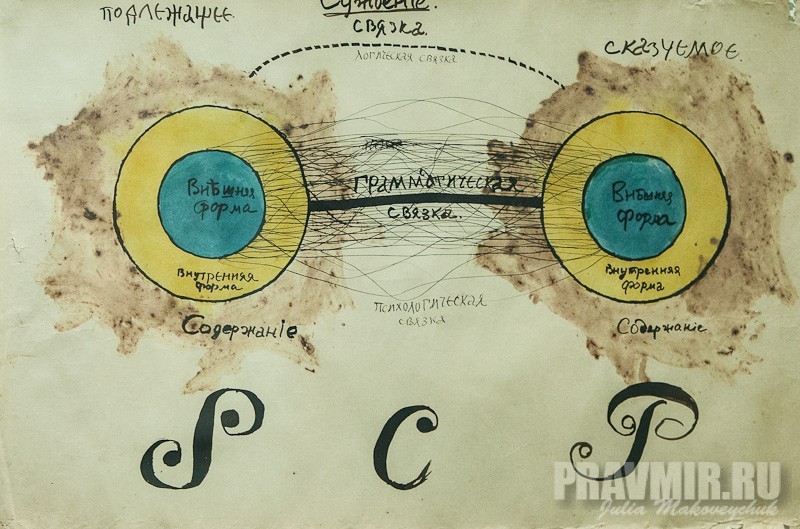 Сужденіе.
подлежащее.
связка.
сказуемое.
логическая связка
грамматическая
связка.
Внѣшняя
форма
Внѣшняя
форма
Внутренняя
форма
Внутренняя
форма
психологическая
связка
Содержаніе
Содержаніе
S
C
P
PRAVMIR.RU
Julia Makoveychuk